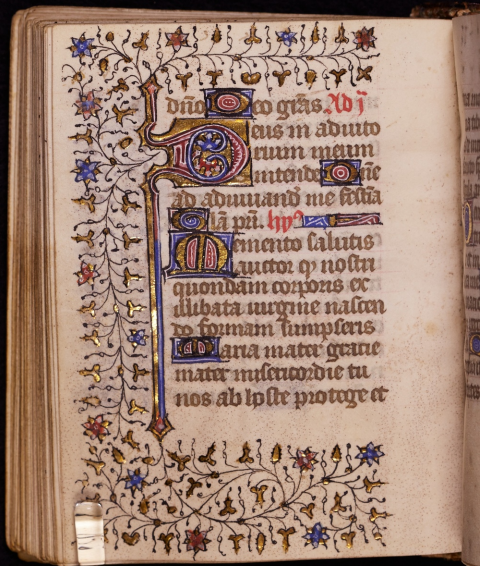 dño Deo grãs. Ad j̃
Deus in adiuto
rium meum
intende Dñe
ad adiuuand̃ me festĩa
Glã pri. hyᵒ
Memento salutis
auctor ꝙ nostri
quondam corporis ex
illibata uirgine nascen
do formam sumpseris
Maria mater gratie
mater misericordie tu
nos ab hoste protege et